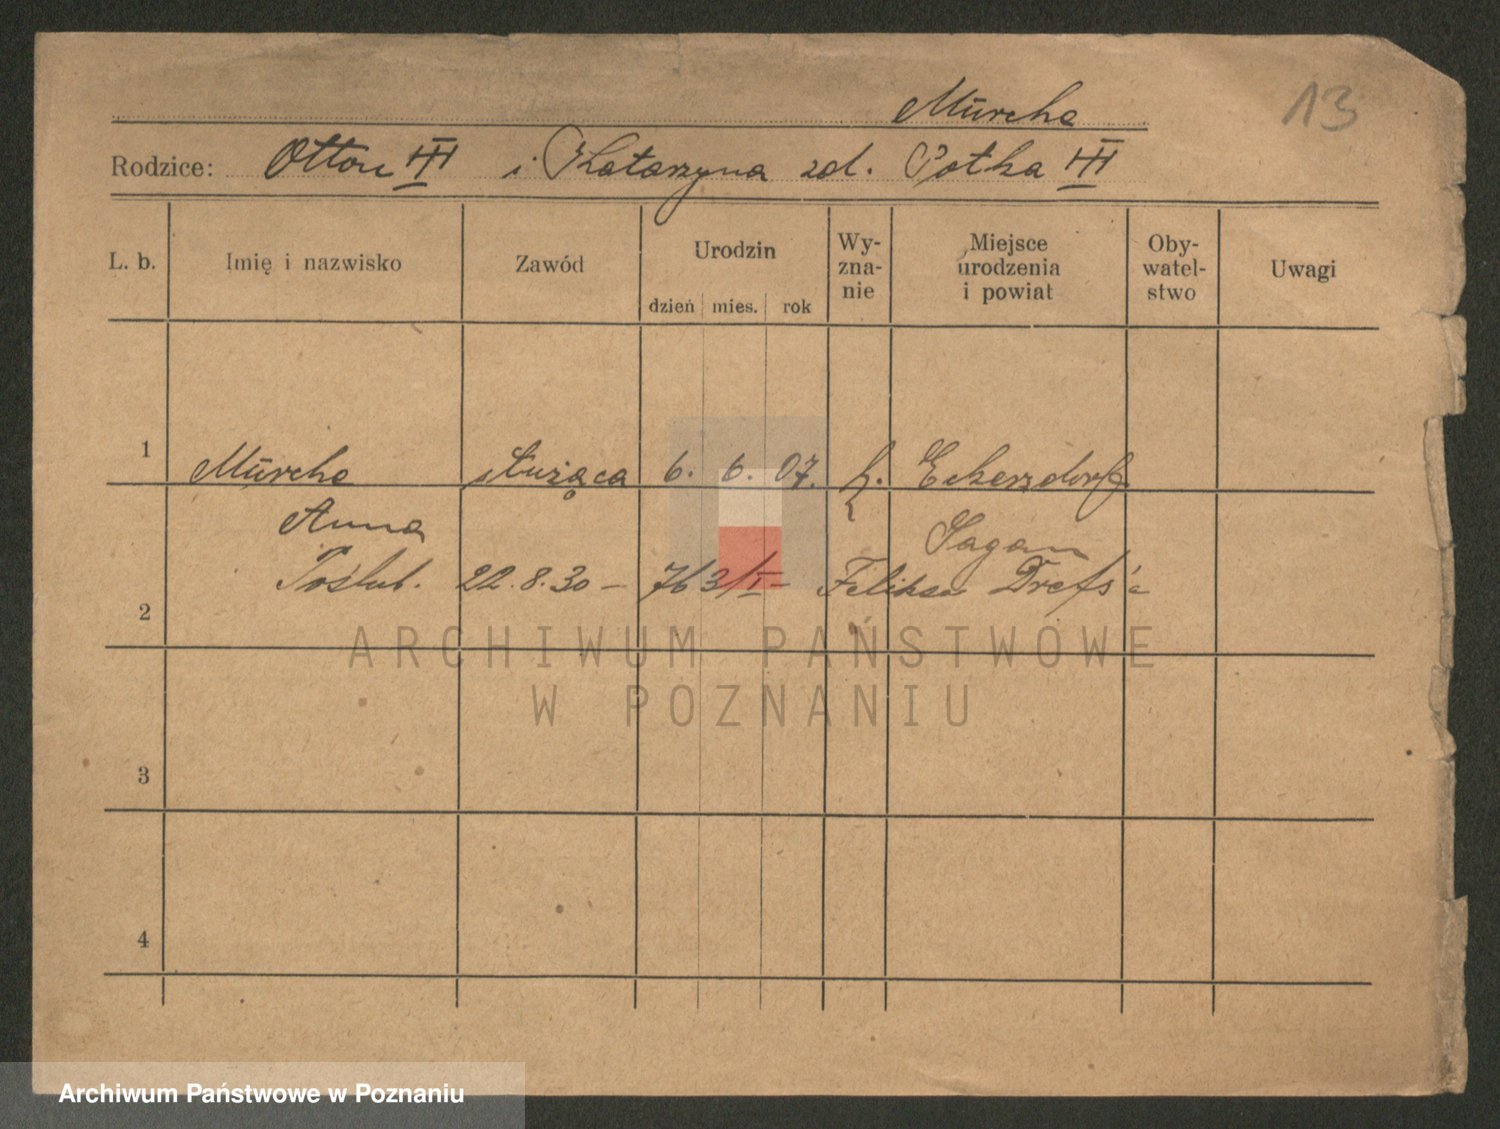 Mūrche
13
Rodzice: Otton i Katarzyna zd. Potka
L. b. Imię i nazwisko Zawód Urodzin dzień mies. rok Wy-zna-nie Miejsce urodzenia i powiat Oby-watel-stwo Uwagi
1 Mūrche służąca 6. 6. 07. k. Eckersdorf
Anna Sagan
2 Poślub. 22.8.30 – 763/I – Feliksa Drefs'a
ARCHIWUM PAŃSTWOWE
W POZNANIU
3
4
Archiwum Państwowe w Poznaniu